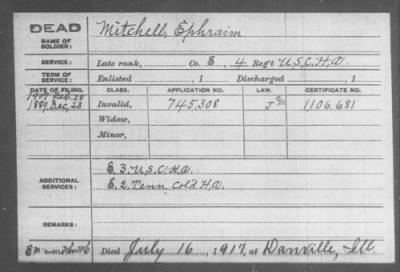 DEAD
NAME OF SOLDIER: Mitchell, Ephraim
SERVICE: Late rank, Co. E, 4 Reg't U.S.C.H.A.
TERM OF SERVICE: Enlisted , 1 Discharged , 1
DATE OF FILING. CLASS. APPLICATION NO. LAW. CERTIFICATE NO.
1907 Feb. 28
1889, Dec, 23 Invalid, 745,308 1106,681
Widow,
Minor,
ADDITIONAL SERVICES: E. 3. U.S.C.H.A.
E. 2. Tenn Col'd H.A.
REMARKS:
Died July 16, 1917, at Danville, Ill.